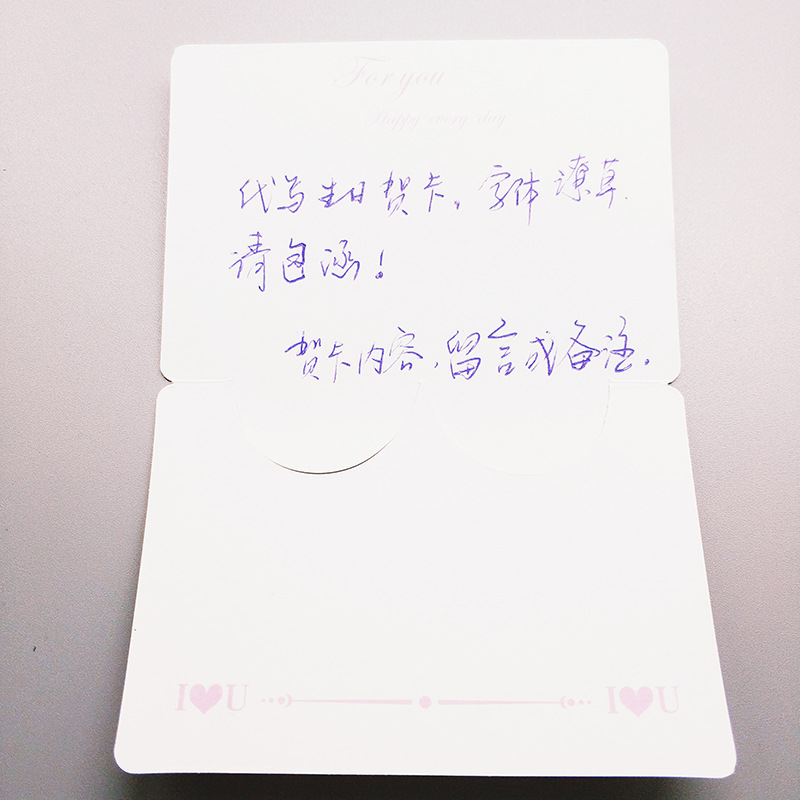 For you
Happy every day
代写生日贺卡。字体潦草
请包涵！
贺卡内容，留言或备注。
I❤U I❤U